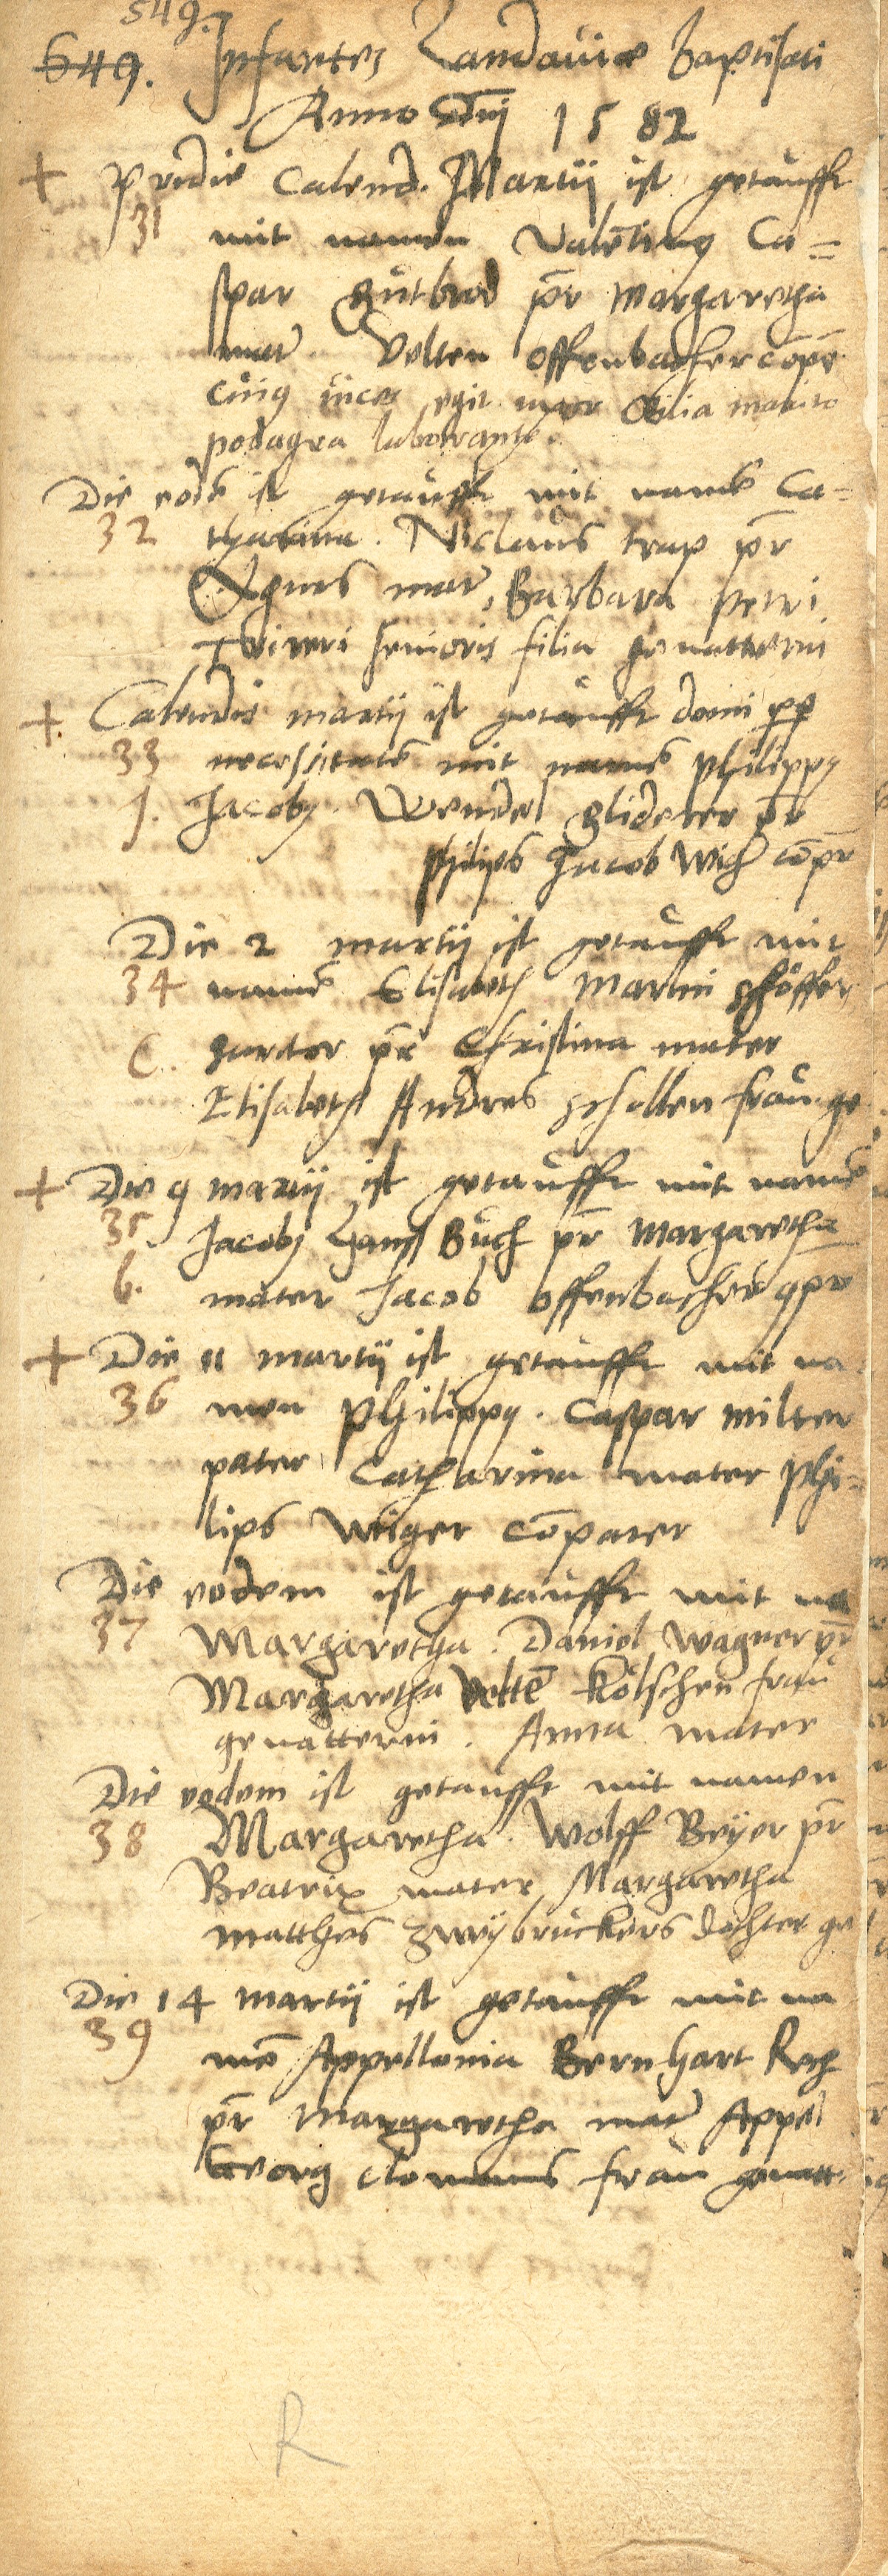 549.
549. Infantes Landaviæ baptisati
Anno Dnj 1582
+ Pridie Calend. Martij ist getaufft
31 mit namen Valētinꝯ Ca=
spar gutbrod pr̄ Margaretha
mat̄ Velten Offenbacher cōpr̄
cuiꝯ vices egit uxor Otilia marito
podagra laborante.
Die eodē ist getaufft mit namē Ca=
32 tharina. Niclaus trap pr̄
Agnes mat̄, Barbara Petri
Treveri senioris filia gevatterin
+ Calendis martij ist getaufft domi ꝓp
33 necessitatē mit namē philippꝯ
J. Jacobꝯ. Wendel gliderer pr̄
philips Jacob Wich cōpr
Die 2 martij ist getaufft mit
34 namē Elisabeth Martin schöffer
C. pr̄ Christina mater
Elisabeth Andres schallen frau ge
+ Die 9 martij ist getaufft mit namē
35 Jacobꝯ Hanss Buch pr̄ Margaretha
6. mater Jacob Offenbacher ꝯpr
+ Die 11 martij ist getaufft mit na
36 men philippꝯ. Caspar milter
pater Catharina mater phi=
lips Weiger cōpater
Die eodem ist getaufft mit na
37 Margaretha. Daniel Wagner pr̄
Margaretha veltē Kölschen frau
gevatterin. Anna mater
Die eodem ist getaufft mit namen
38 Margaretha. Wolff Beyer pr̄
Beatrix mater Margaretha
matthes zweybruckers dochter ge
Die 14 martij ist getaufft mit na
39 mē Appellonia Bernhart Rech
pr̄ Margaretha mat̄ Appel
Georg frau gevatt.
R